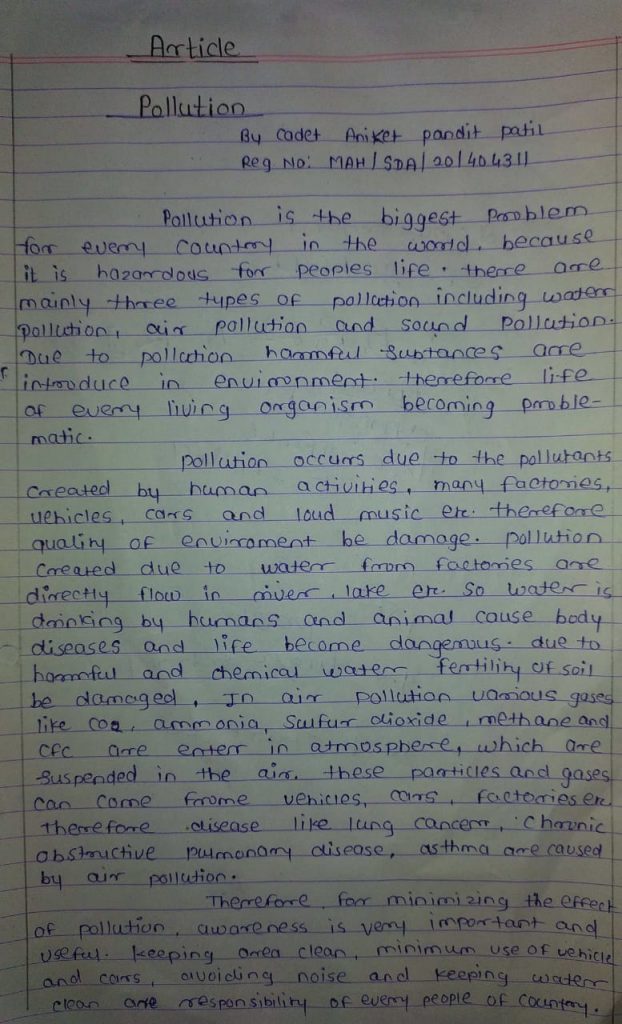 Article
Pollution
By Cadet Aniket pandit patil
Reg No: MAH/SDA/20/404311
Pollution is the biggest Problem
for every country in the world. because
it is hazardous for peoples life. there are
mainly three types of pollution including water
pollution, air pollution and sound pollution.
Due to pollution harmful subtances are
introduce in environment. therefore life
of every living organism becoming proble-
matic.
pollution occurs due to the pollutants
created by human activities, many factories,
vehicles, cars and loud music etc. therefore
quality of enviroment be damage. pollution
created due to water from factories are
directly flow in river, lake etc. so water is
drinking by humans and animal cause body
diseases and life become dangerous. due to
harmful and chemical water fertility of soil
be damaged. In air pollution various gases
like CO2, ammonia, sulfur dioxide, methane and
CFC are enter in atmosphere, which are
suspended in the air. these particles and gases
can come frome vehicles, cars, factories etc
therefore disease like lung cancer, chronic
obstructive pulmonary disease, asthma are caused
by air pollution.
Therefore, for minimizing the effect
of pollution, awareness is very important and
useful. keeping area clean, minimum use of vehicle
and cars, avoiding noise and keeping water
clean are responsibility of every people of country.